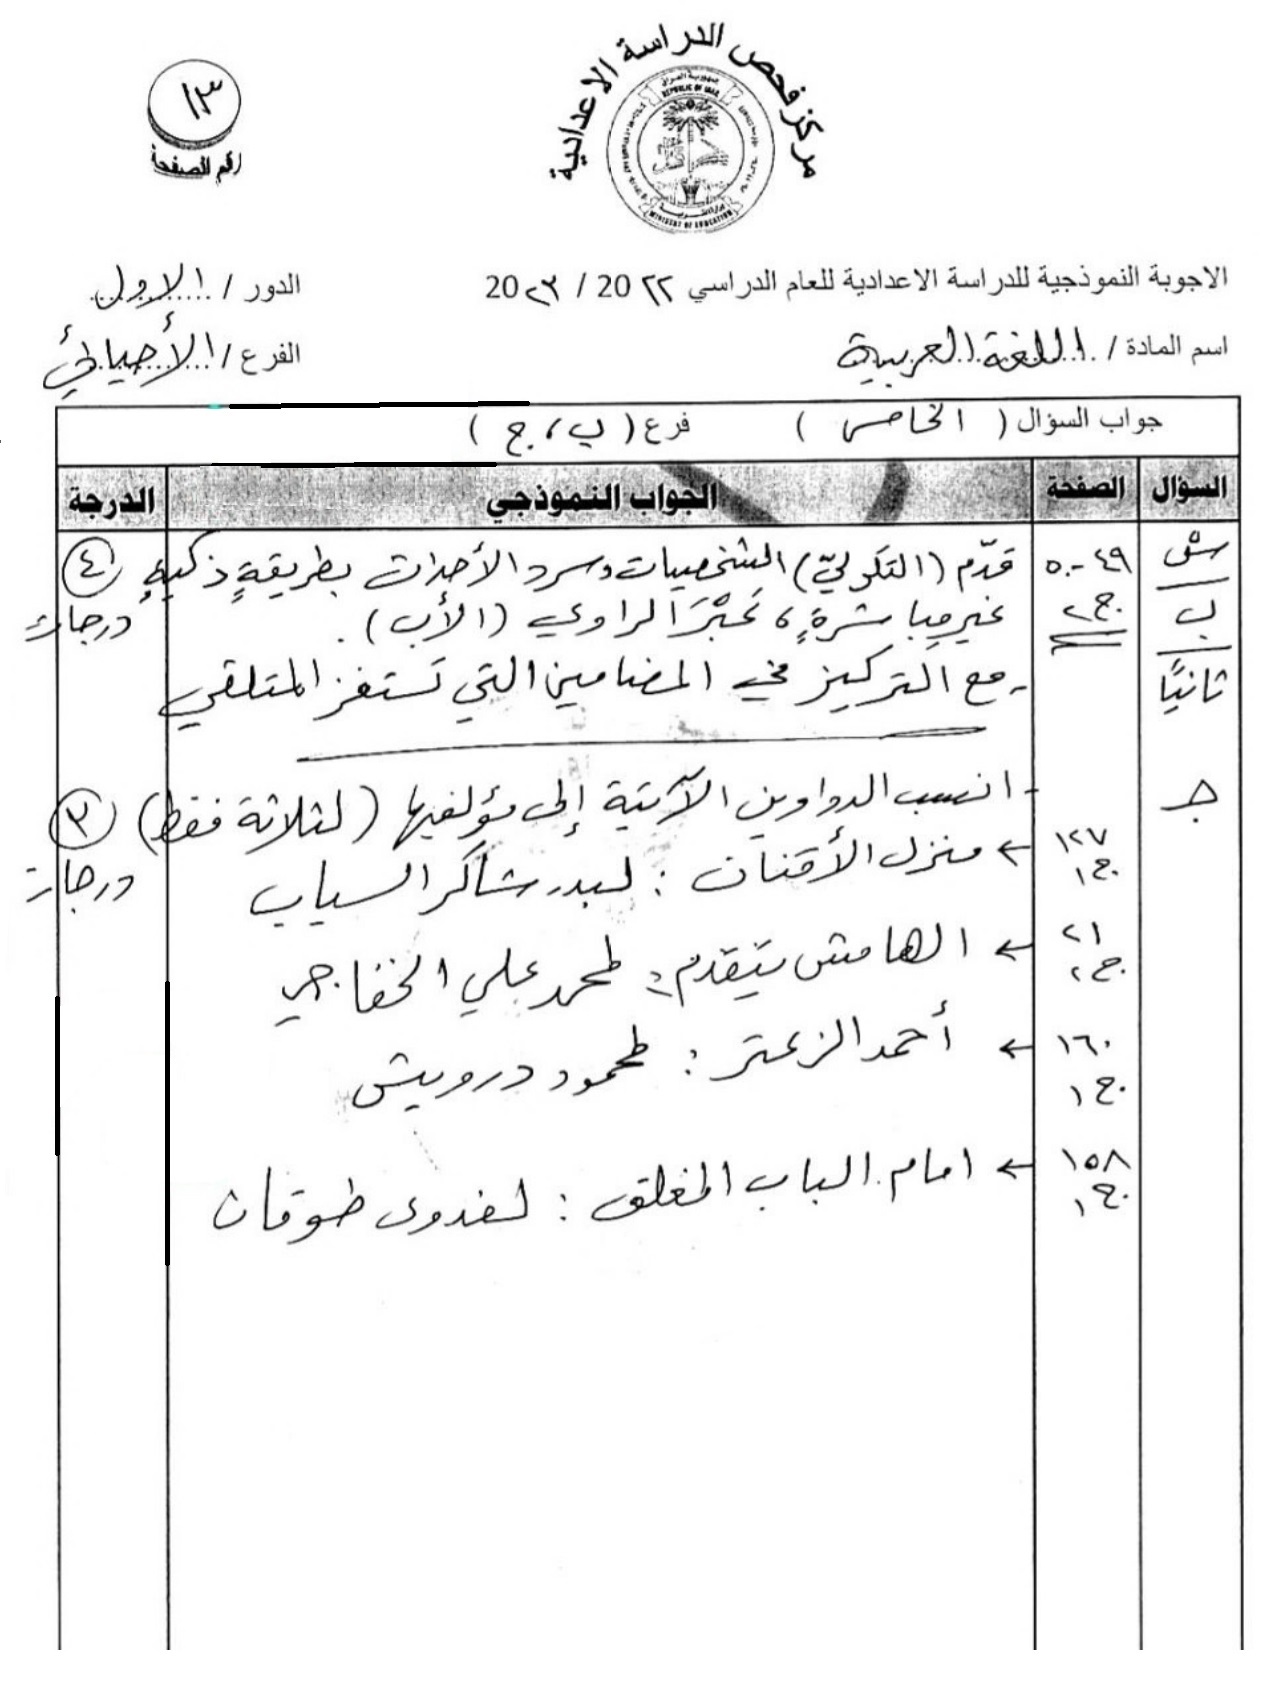 مركز فحص الدراسة الاعدادية
جمهورية العراق
REPUBLIC OF IRAQ
وزارة التربية
MINISTRY OF EDUCATION
١٣
رقم الصفحة
الاجوبة النموذجية للدراسة الاعدادية للعام الدراسي 20٢٢ / 20٢٣
الدور / الاول
اسم المادة / اللغة العربية
الفرع / الأحيائي
جواب السؤال ( الخامس ) فرع ( ب ، ج )
السؤال الصفحة الجواب النموذجي الدرجة
س٥ ٤٩-٥٠ قدّم (التكرليّ) الشخصيات وسرد الأحداث بطريقةٍ ذكيةٍ ٤
ب ج٢ غير مباشرةٍ، عَبْرَ الراوي (الأب). درجات
ثانيًا - مع التركيز في المضامين التي تستفز المتلقي
جـ - انسب الدواوين الآتية إلى مؤلفيها (لثلاثة فقط) ٣
١٢٧ ← منزل الأقنان : لبدر شاكر السياب درجات
ج١
٢١ ← الهامش يتقدم : لمحمد علي الخفاجي
ج٢
١٦٠ ← أحمد الزعتر : لمحمود درويش
ج١
١٥٨ ← امام الباب المغلق : لفدوى طوقان
ج١